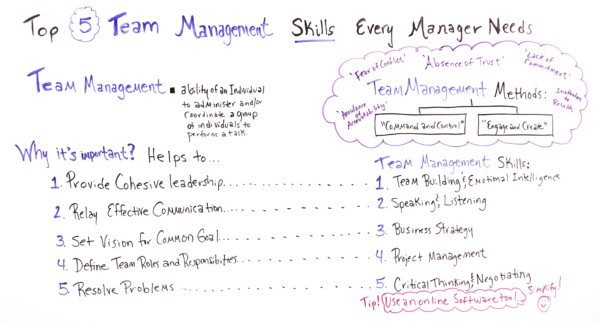 Top 5 Team Management Skills Every Manager Needs
Team Management ▪ ability of an Individual
to administer and/or
Coordinate a group
of individuals to
perform a task.
"Fear of Conflict"
"Absence of Trust"
"Lack of
Commitment"
Team Management Methods:
"Avoidance of
Accountability"
Inattention
to
Results
"Command and Control"
"Engage and Create"
Why it's important? Helps to...
1. Provide Cohesive leadership
2. Relay Effective Communication
3. Set Vision for Common Goal
4. Define Team Roles and Responsibilities
5. Resolve Problems
Team Management Skills:
1. Team Building & Emotional Intelligence
2. Speaking & Listening
3. Business Strategy
4. Project Management
5. Critical Thinking & Negotiating
Tip! Use an online Software tool
Simplify!